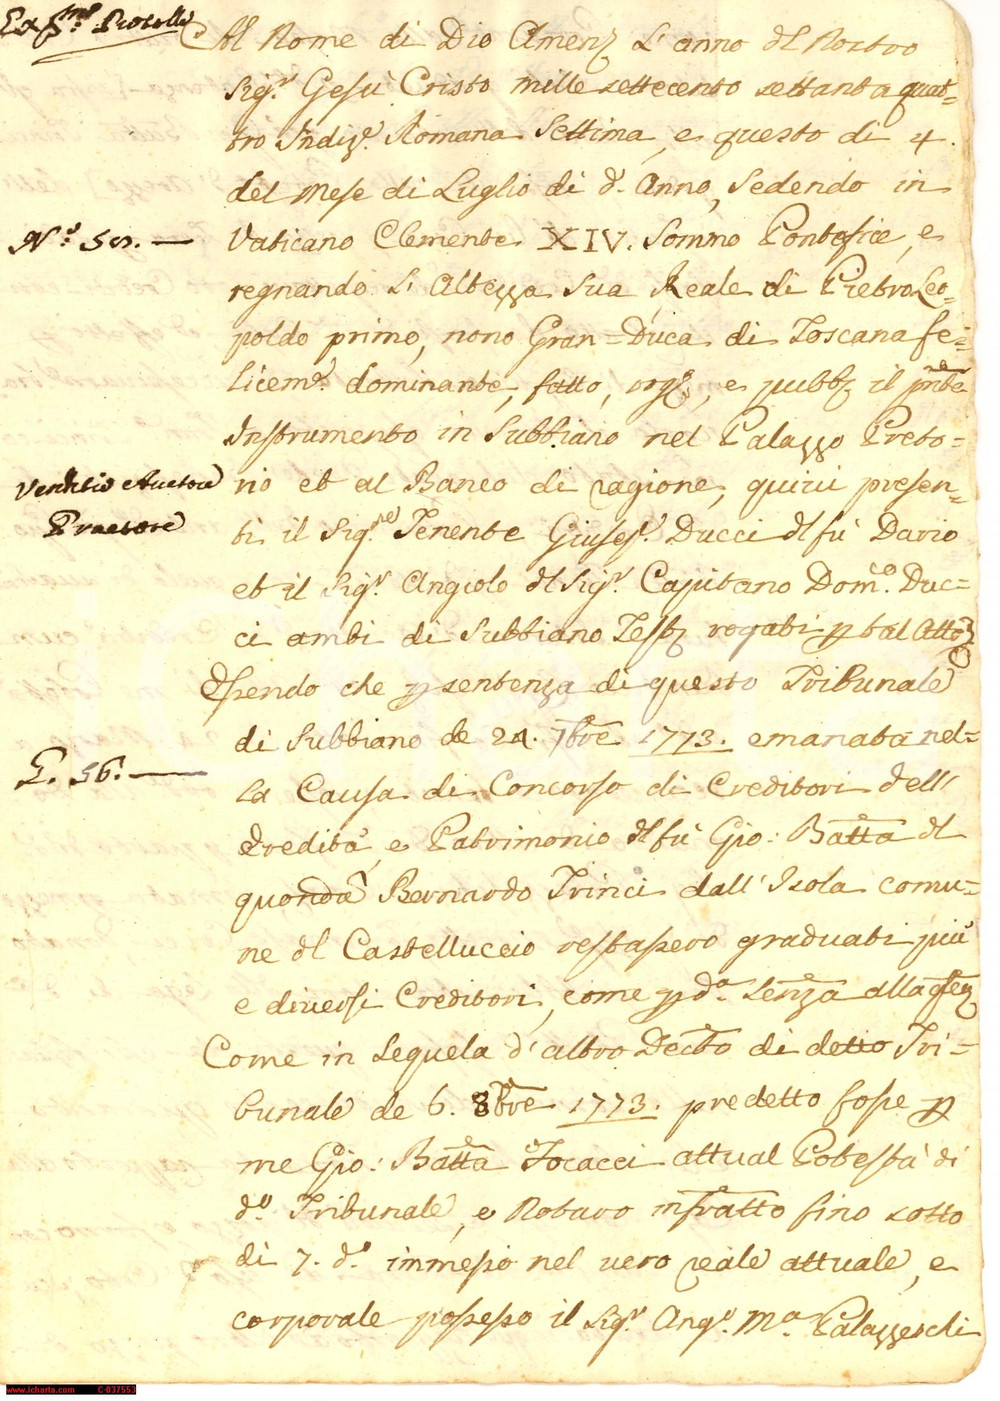 Al Nome di Dio Amen L'anno del Nostro
Sig.r Gesù Cristo mille settecento settanta quat=
tro Indiz.e Romana Settima, e questo dì 4.
del Mese di Luglio di d.o Anno, Sedendo in
N.o 50. —
Vaticano Clemente XIV. Sommo Pontefice, e
regnando L'Altezza Sua Reale di Pietro Leo=
poldo primo, nono Gran=Duca di Toscana fe=
licem.e dominante, fatto, rog.o, e pubb. il pnte
Instrumento in Subbiano nel Palazzo Preto=
Venditio Auctore
Praetore
rio et al Banco di ragione, quivi presen=
ti il Sig.re Tenente Giusep.e Ducci del fù Dario
et il Sig.r Angiolo del Sig.r Capitano Dom.o Duc=
ci ambi di Subbiano Test. rogati p tal Atto
Essendo che p sentenza di questo Tribunale
di Subbiano de 24. 7bre 1773. emanata nel=
P. 56. —
la Causa di Concorso di Creditori dell'
Eredità, e Patrimonio del fù Gio: Batta del
quondā Bernardo Trinci dall'Isola comu=
ne del Castelluccio restassero graduati più
e diversi Creditori, come p d.a Senza alla
Come in sequela d'altro Decto di detto Tri=
bunale de 6. 8bre 1773. predetto fosse p
me Gio: Batta Focacci attual Potestà di
d.o Tribunale, e Notaro infratto fino sotto
dì 7. d.o immesso nel vero reale attuale, e
corporale possesso il Sig.r Ang.o M.a Palazzeschi
www.icharta.com C-037553